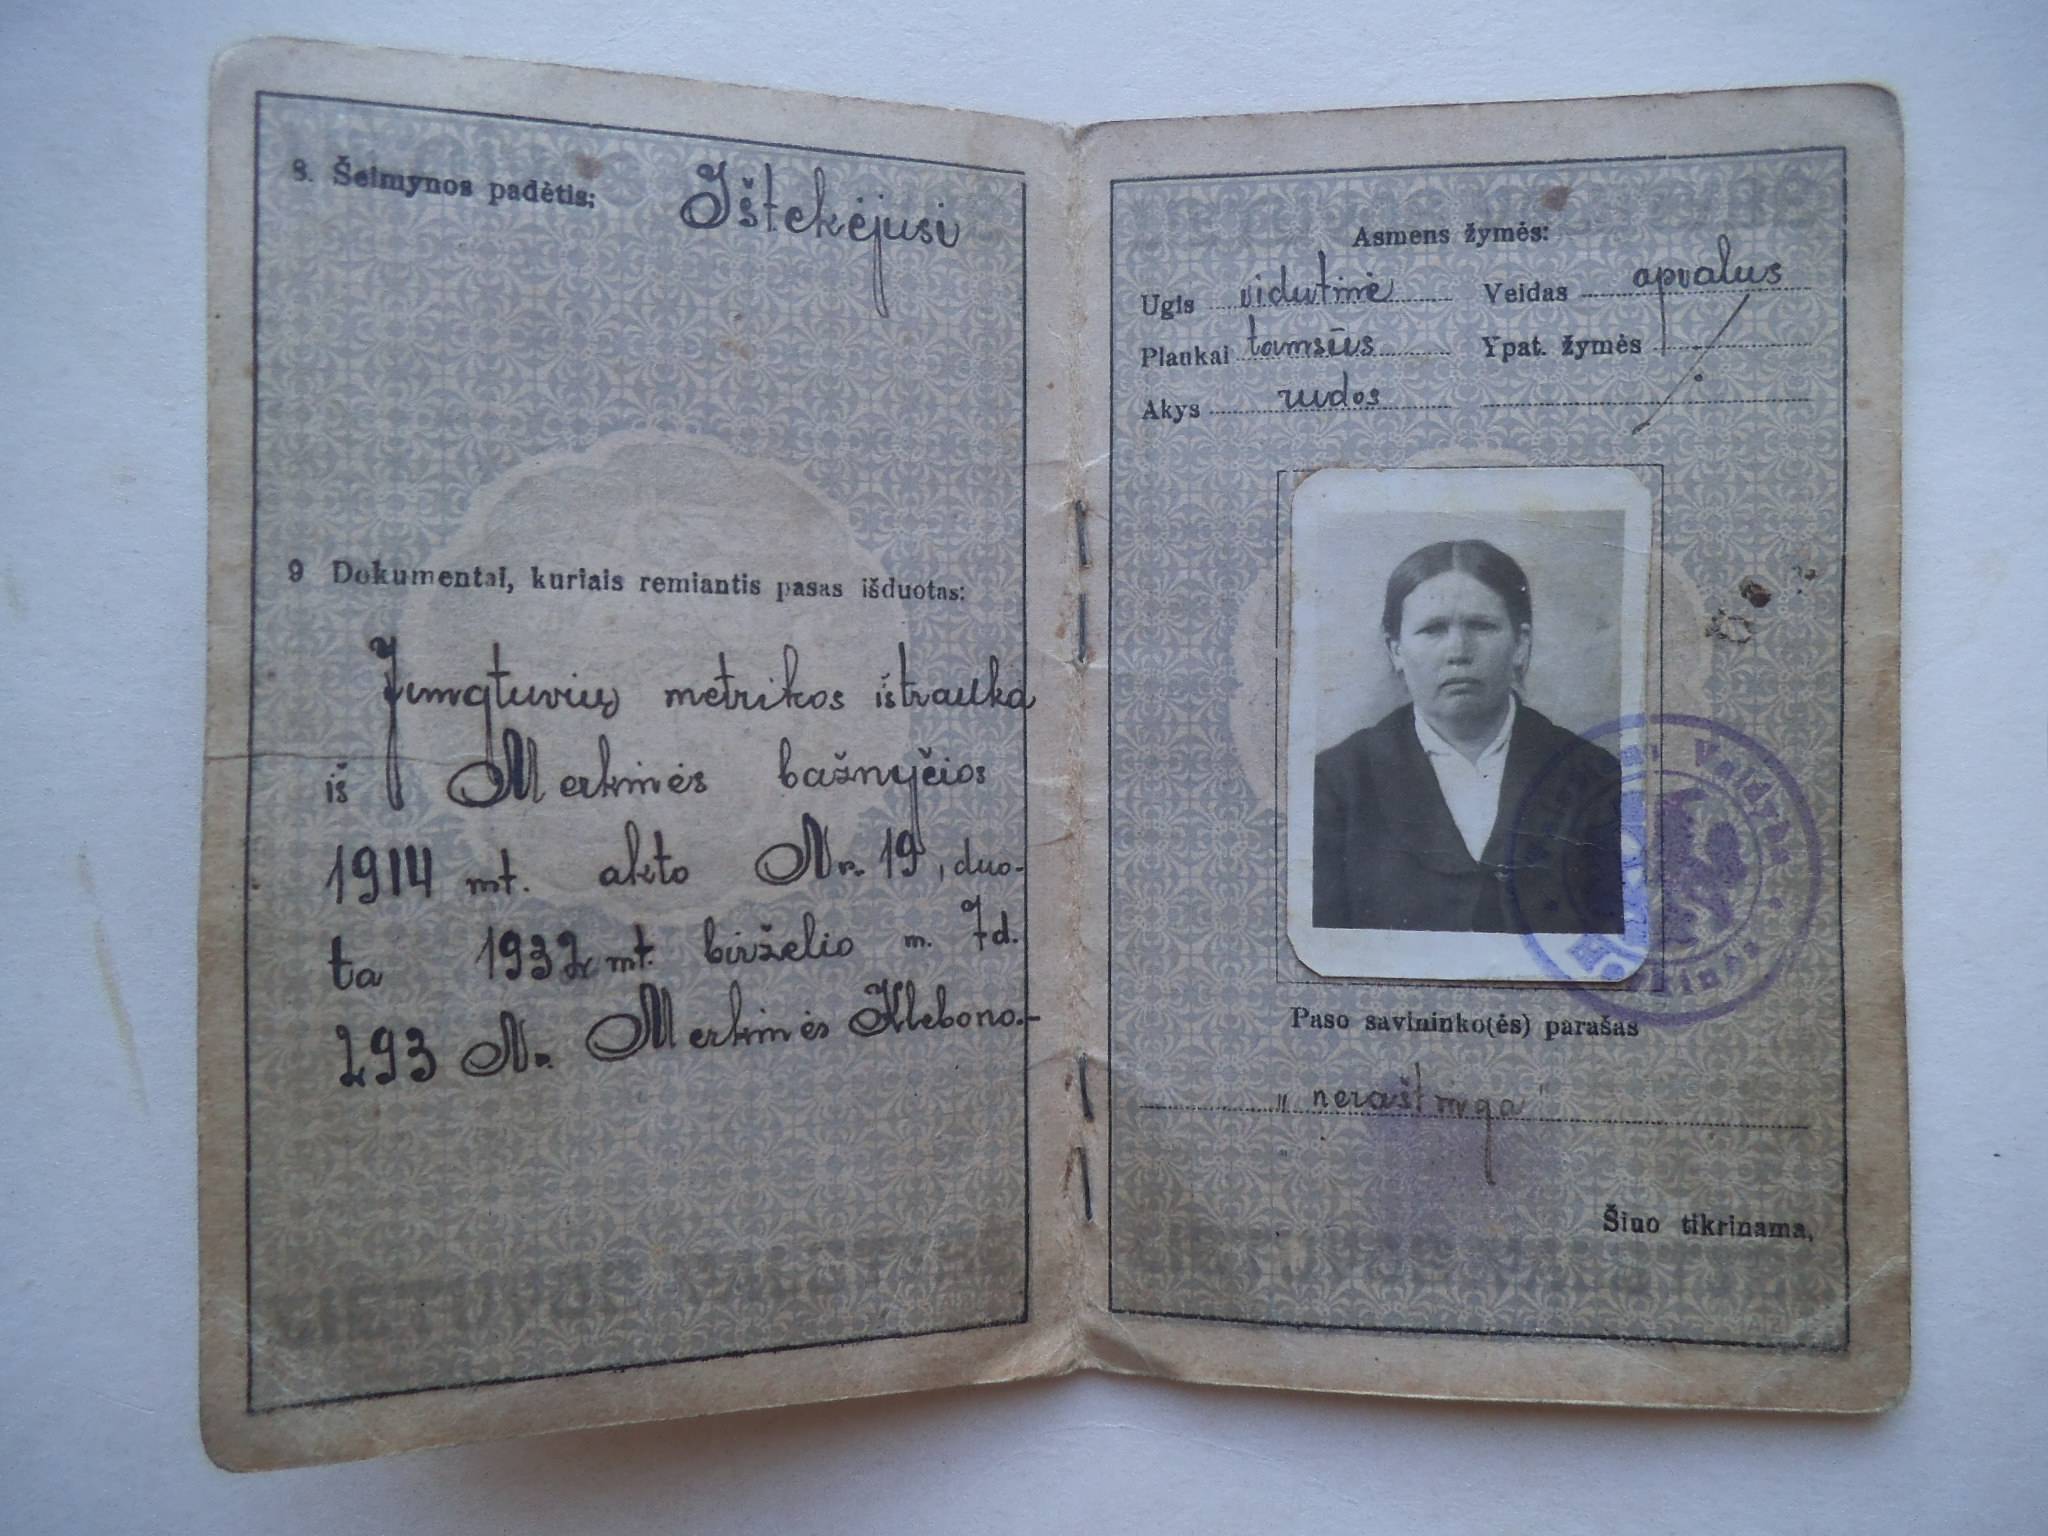 8. Šeimynos padėtis: Ištekėjusi
9 Dokumentai, kuriais remiantis pasas išduotas:
Jungtuvių metrikos ištrauka
iš Merkinės bažnyčios
1914 mt. akto Nr. 19, duo-
ta 1932 mt. birželio m. 7 d.
293 Nr. Merkinės Klebono.-
LIETUVOS
Asmens žymės:
Ugis vidutinė Veidas apvalus
Plaukai tamsūs Ypat. žymės
Akys rudos
Valdyba
Paso savininko(ės) parašas
„neraštinga"
Šiuo tikrinama,